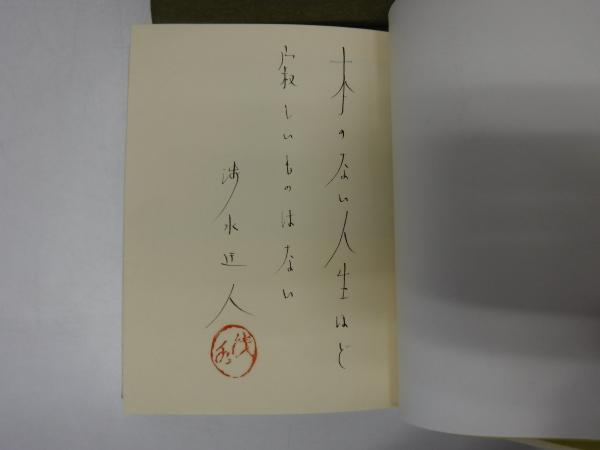 本のない人生ほど
寂しいものはない
渉水人